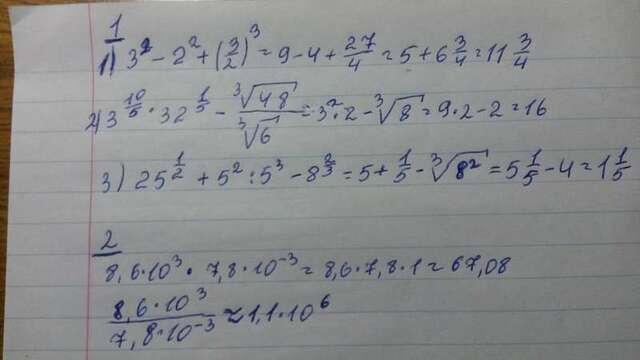 1
1) 3² - 2² + (3/2)³ = 9 - 4 + 27/4 = 5 + 6 3/4 = 11 3/4
2) 3^(10/5) · 32^(1/5) - ∛48/∛6 = 3² · 2 - ∛8 = 9 · 2 - 2 = 16
3) 25^(1/2) + 5² : 5³ - 8^(2/3) = 5 + 1/5 - ∛8² = 5 1/5 - 4 = 1 1/5
2
8,6 · 10³ · 7,8 · 10⁻³ = 8,6 · 7,8 · 1 = 67,08
8,6 · 10³ / 7,8 · 10⁻³ ≈ 1,1 · 10⁶